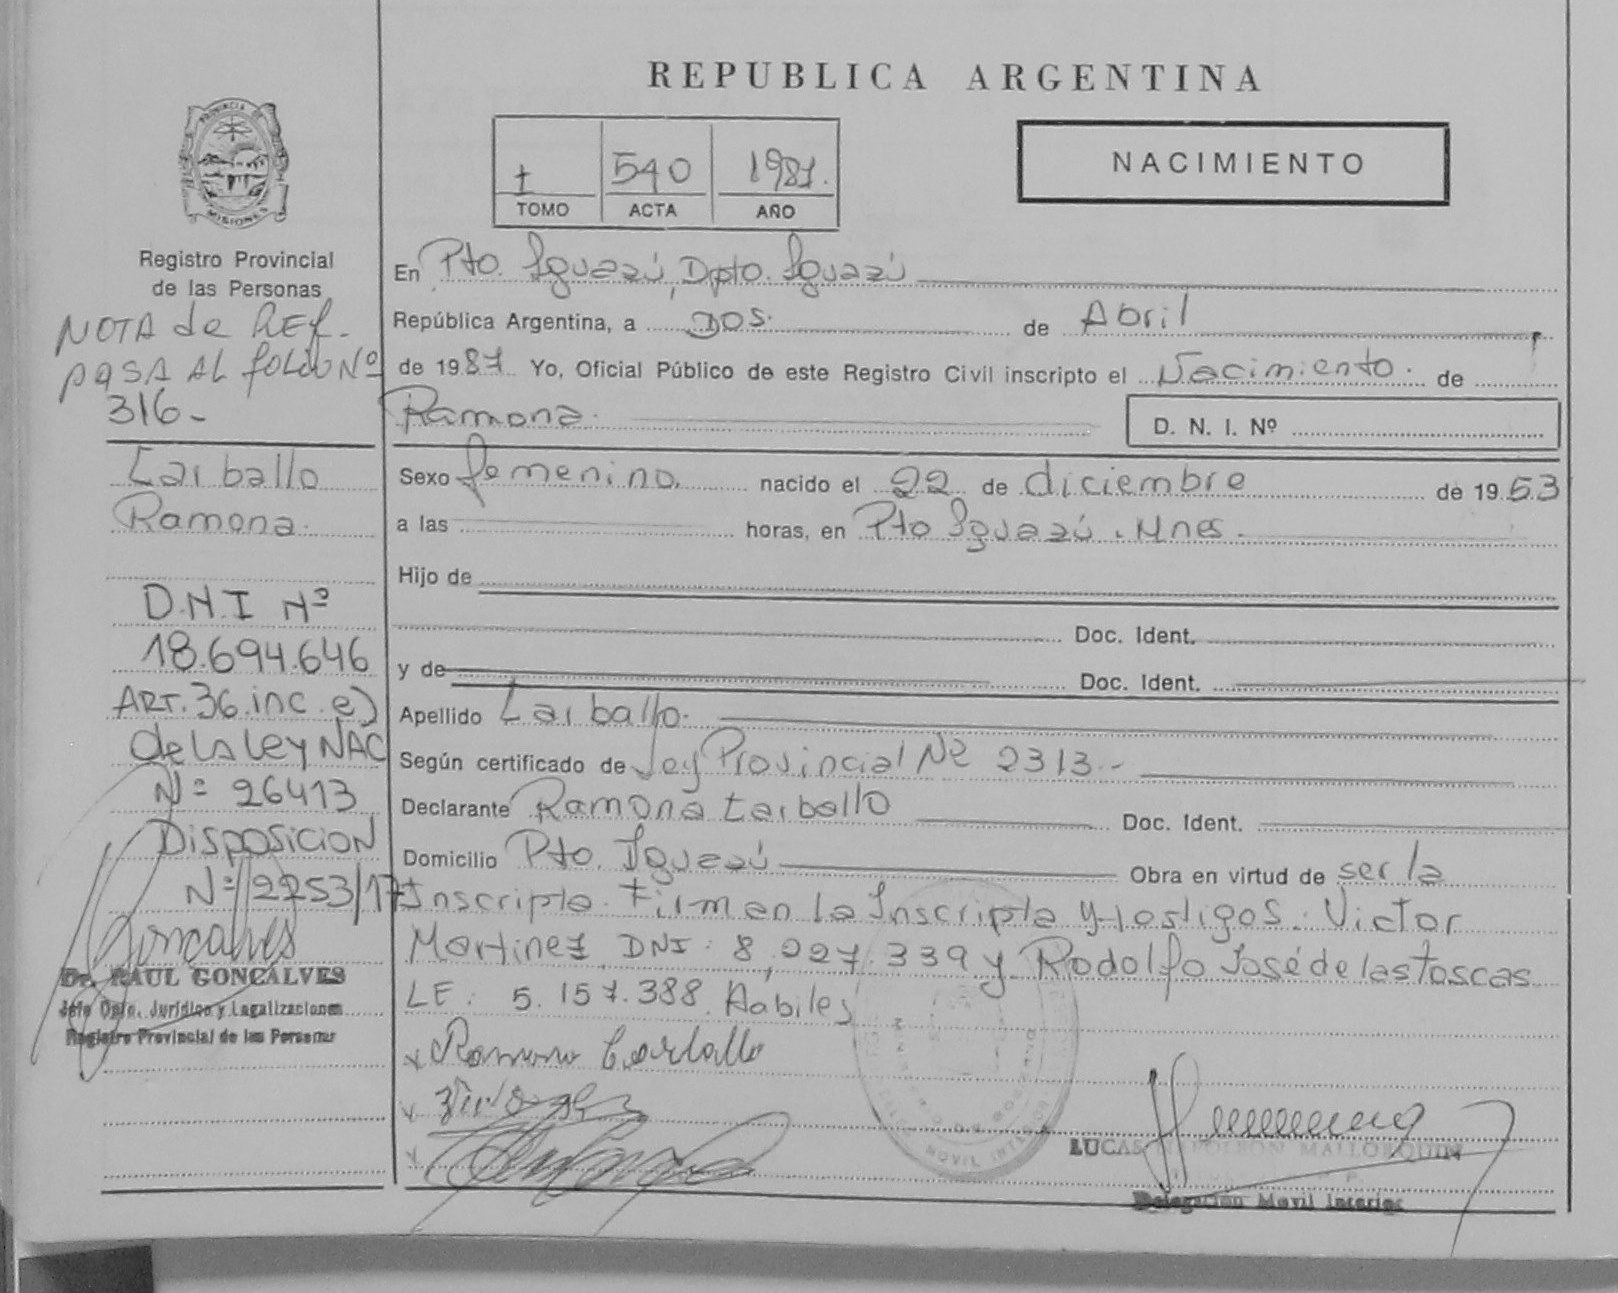 REPUBLICA ARGENTINA
PROVINCIA DE
MISIONES
Registro Provincial
de las Personas
NOTA de REf.
PASA AL folio Nº
316-
Carballo
Ramona.
D.N.I Nº
18.694.646
ART. 36. inc. e)
de la ley NAC
Nº 26413
Disposicion
Nº 2253/17
Goncalves
Dr. RAUL GONCALVES
Jefe Dpto. Jurídico y Legalizaciones
Registro Provincial de las Personas
I 540 1987.
TOMO ACTA AÑO
NACIMIENTO
En Pto. Iguazú, Dpto. Iguazú
República Argentina, a Dos. de Abril
de 1987 Yo, Oficial Público de este Registro Civil inscripto el Nacimiento. de
Ramona. D. N. I. Nº
Sexo femenino. nacido el 22 de diciembre de 1953
a las horas, en Pto Iguazú. Mnes.
Hijo de
Doc. Ident.
y de Doc. Ident.
Apellido Carballo.
Según certificado de Ley Provincial Nº 2313.-
Declarante Ramona Carballo Doc. Ident.
Domicilio Pto. Iguazú Obra en virtud de ser la
Inscripta. Firman la Inscripta y testigos. Victor
Martinez DNI: 8,027.339 y Rodolfo José de las Toscas
LE: 5.157.388. Habiles
x Ramona Carballo
x
x
LUCAS NAPOLEON MALLORQUIN
Delegación Movil Interior
MOVIL INTERIOR